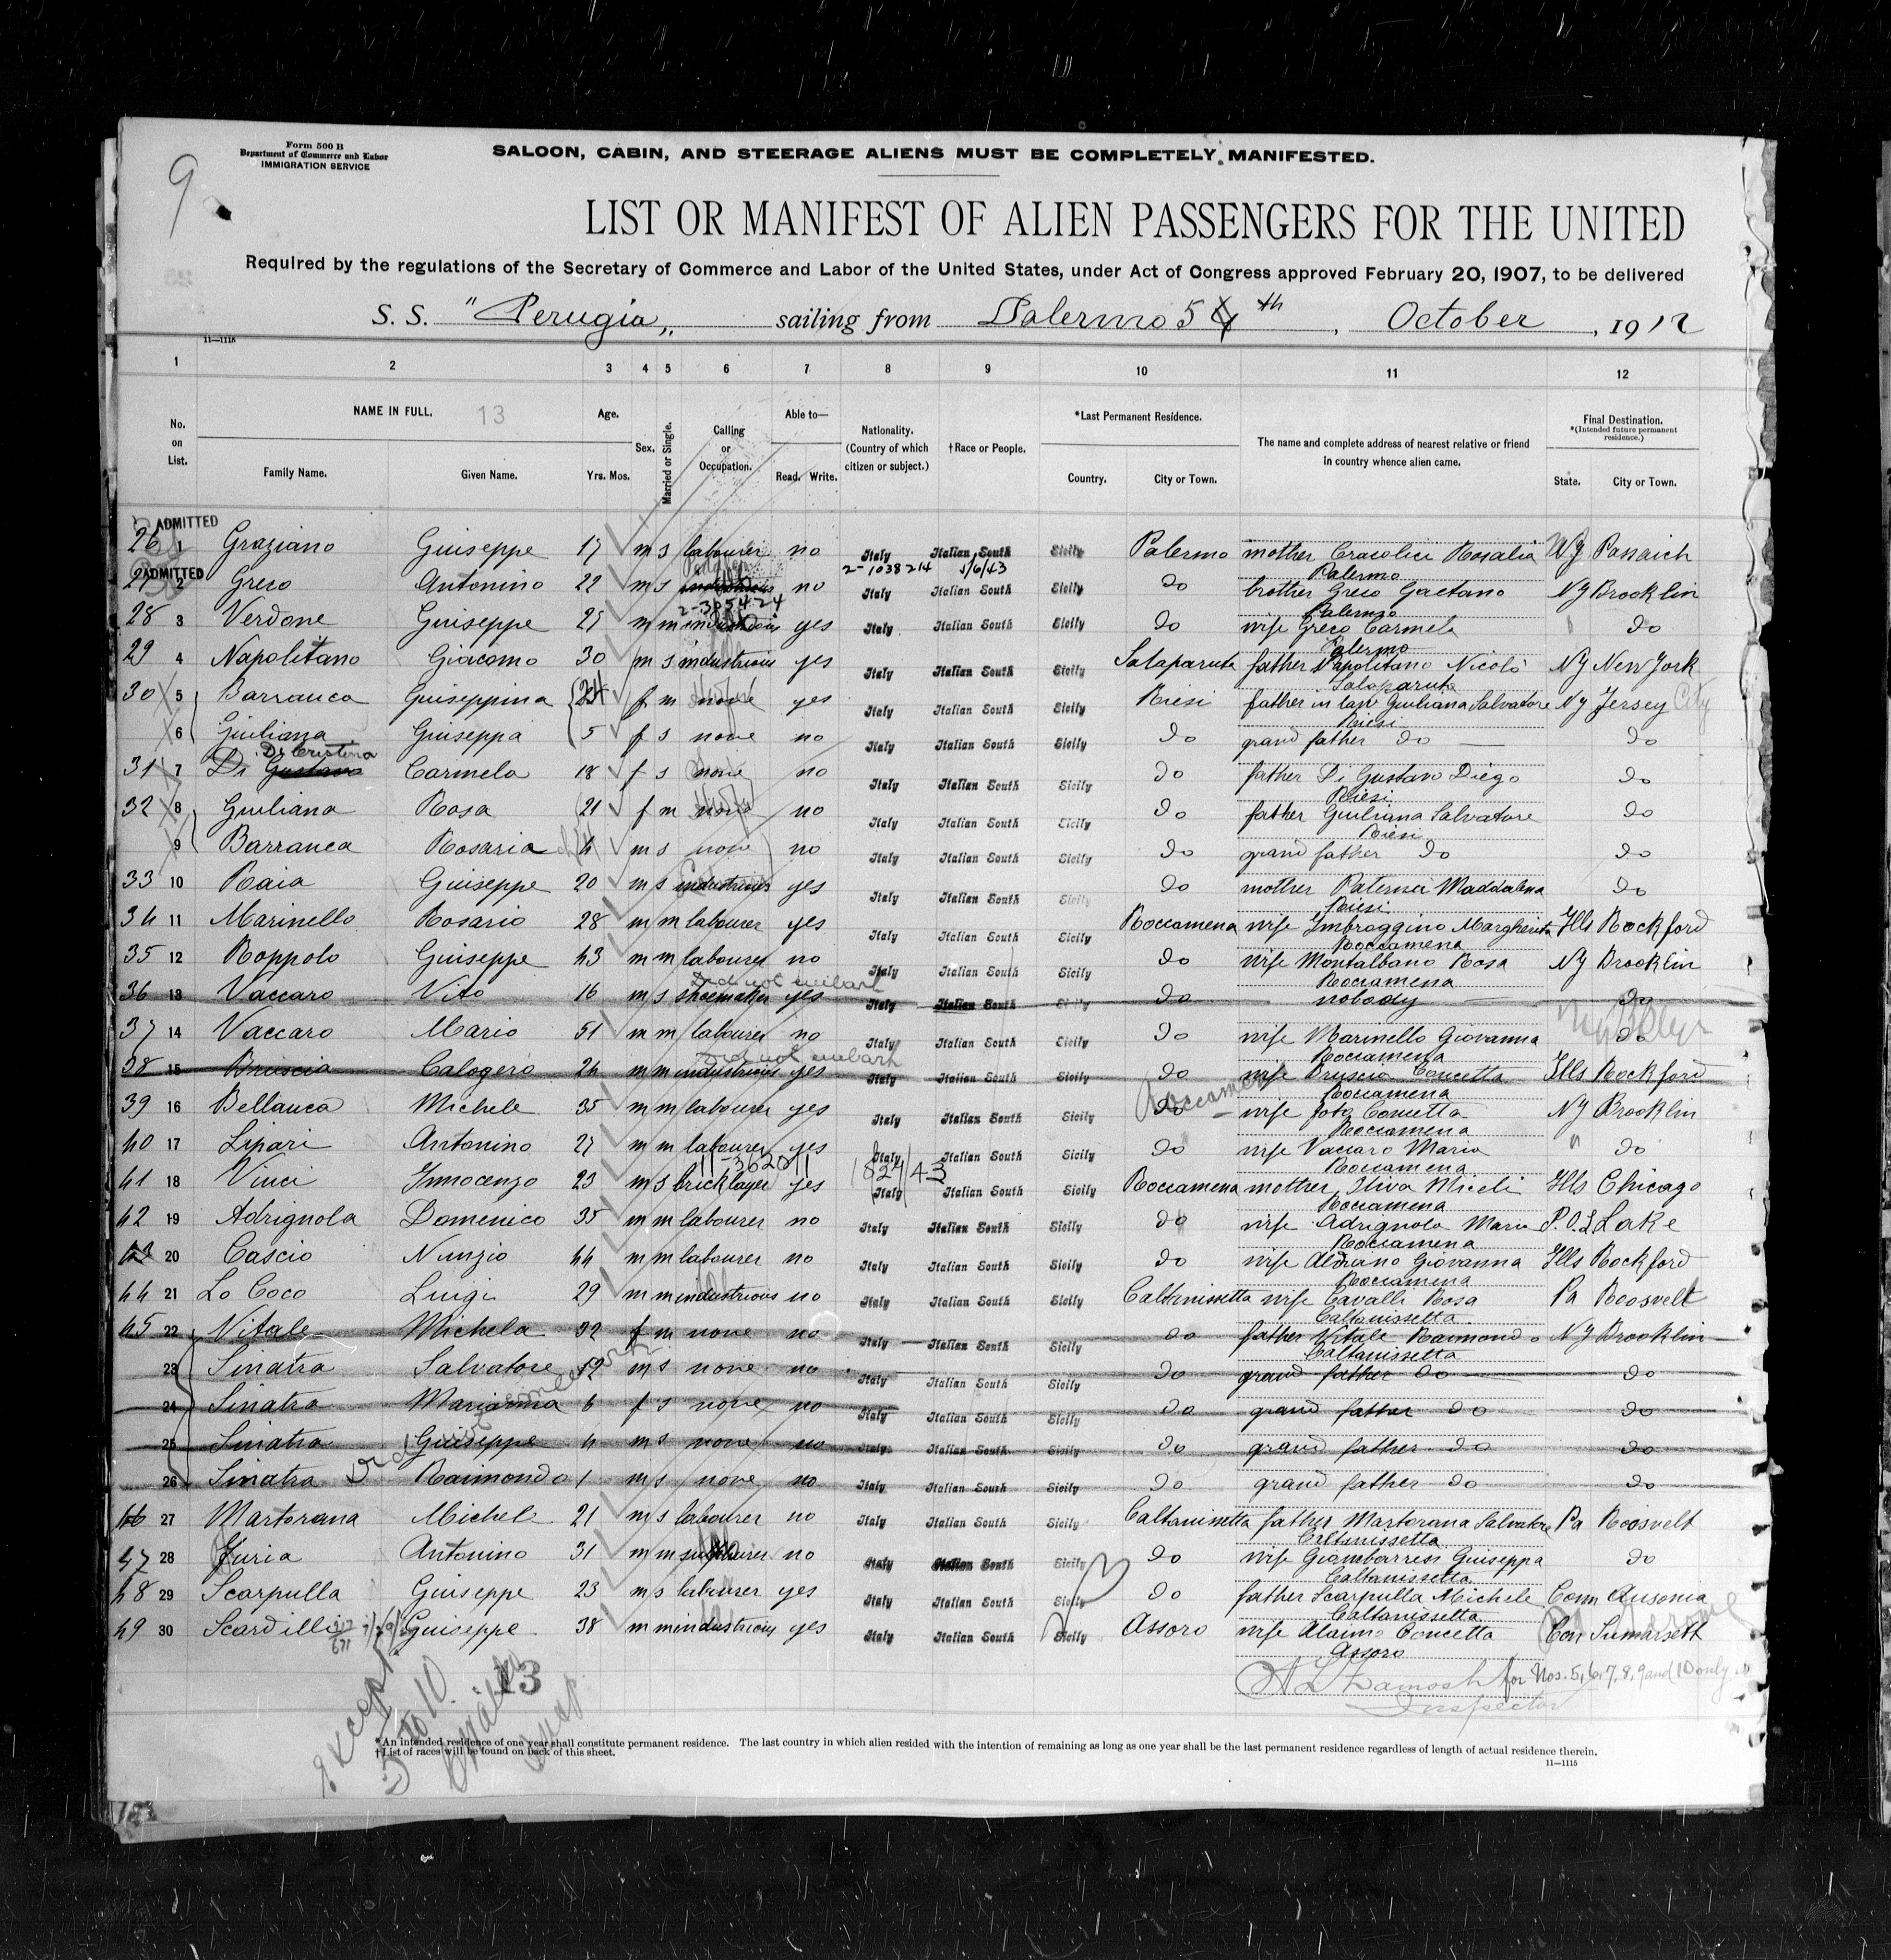 9
Form 500 B
Department of Commerce and Labor
IMMIGRATION SERVICE
SALOON, CABIN, AND STEERAGE ALIENS MUST BE COMPLETELY MANIFESTED.
LIST OR MANIFEST OF ALIEN PASSENGERS FOR THE UNITED
Required by the regulations of the Secretary of Commerce and Labor of the United States, under Act of Congress approved February 20, 1907, to be delivered
S. S. "Perugia,, sailing from Palermo 5 th, October, 1912
11—1115
1 2 3 4 5 6 7 8 9 10 11 12
No. on List. NAME IN FULL. 13 Age. Sex. Married or Single. Calling or Occupation. Able to— Nationality. (Country of which citizen or subject.) †Race or People. *Last Permanent Residence. The name and complete address of nearest relative or friend in country whence alien came. Final Destination. *(Intended future permanent residence.)
Family Name. Given Name. Yrs. Mos. Read. Write. Country. City or Town. State. City or Town.
ADMITTED
26 1 Graziano Giuseppe 17 m s labourer no Italy Italian South Sicily Palermo mother Rosalia NJ Passaich
Palermo
2-1038214 1/6/43
ADMITTED
27 2 Greco Antonino 22 m s no Italy Italian South Sicily do brother Greco Gaetano NY Brooklin
Palermo
2-385424
28 3 Verdone Giuseppe 27 m m industrious yes Italy Italian South Sicily do wife Greco Carmela do
Palermo
29 4 Napolitano Giacomo 30 m s industrious yes Italy Italian South Sicily Salaparuta father Napolitano Nicolò NY New York
Salaparuta
30 5 Barranca Giuseppina 24 f m none yes Italy Italian South Sicily Riesi father in law Giuliana Salvatore NY Jersey City
Riesi
6 Giuliana Giuseppa 5 f s none no Italy Italian South Sicily do grand father do do
Di Cristina
31 7 Di Gustavo Carmela 18 f s none no Italy Italian South Sicily do father Di Gustavo Diego do
Riesi
32 8 Giuliana Rosa 21 f m none no Italy Italian South Sicily do father Giuliana Salvatore do
Riesi
9 Barranca Rosaria 4 m s none no Italy Italian South Sicily do grand father do do
33 10 Raia Giuseppe 20 m s industrious yes Italy Italian South Sicily do mother Paternò Maddalena do
Riesi
34 11 Marinello Rosario 28 m m labourer yes Italy Italian South Sicily Roccamena wife Imbroggino Margherita Ills Rockford
Roccamena
35 12 Roppolo Giuseppe 43 m m labourer no Italy Italian South Sicily do wife Montalbano Rosa NY Brooklin
Roccamena
Did not embark
36 13 Vaccaro Vito 16 m s shoemaker yes Italy Italian South Sicily do nobody do
37 14 Vaccaro Mario 51 m m labourer no Italy Italian South Sicily do wife Marinello Giovanna do
Roccamena
Did not embark
38 15 Bruscia Calogero 24 m m industrious yes Italy Italian South Sicily do wife Bruscia Concetta Ills Rockford
Roccamena
39 16 Bellanca Michele 35 m m labourer yes Italy Italian South Sicily do Roccamena wife Concetta NY Brooklin
Roccamena
40 17 Lipari Antonino 27 m m labourer yes Italy Italian South Sicily do wife Vaccaro Maria " do
Roccamena
11-362011 1824/43
41 18 Vinci Innocenzo 23 m s bricklayer yes Italy Italian South Sicily Roccamena mother Oliva Miceli Ills Chicago
Roccamena
42 19 Adrignola Domenico 35 m m labourer no Italy Italian South Sicily do wife Adrignola Maria Lake
Roccamena
43 20 Cascio Nunzio 44 m m labourer no Italy Italian South Sicily do wife Giovanna Ills Rockford
Roccamena
44 21 Lo Coco Luigi 29 m m industrious no Italy Italian South Sicily Caltanissetta wife Cavalli Rosa Pa Roosvelt
Caltanissetta
45 22 Vitale Michela 32 f m none no Italy Italian South Sicily do father Vitale Raimondo NY Brooklin
Caltanissetta
23 Sinatra Salvatore 12 m s none no Italy Italian South Sicily do grand father do do
24 Sinatra Marianna 6 f s none no Italy Italian South Sicily do grand father do do
25 Sinatra Giuseppe 4 m s none no Italy Italian South Sicily do grand father do do
26 Sinatra Raimondo 1 m s none no Italy Italian South Sicily do grand father do do
Did not embark
46 27 Martorana Michele 21 m s labourer no Italy Italian South Sicily Caltanissetta father Martorana Salvatore Pa Roosvelt
Caltanissetta
47 28 Furia Antonino 31 m m no Italy Italian South Sicily do wife Giambarresi Giuseppa do
Caltanissetta
48 29 Scarpulla Giuseppe 23 m s labourer yes Italy Italian South Sicily do father Scarpulla Michele Conn Ausonia
Caltanissetta
49 30 Scardilli Giuseppe 38 m m industrious yes Italy Italian South Sicily Assoro wife Alaimo Concetta Con Sumarsett
Assoro
for Nos. 5, 6, 7, 8, 9 and 10 only
Inspector
13
except
5 to 10
Insp
*An intended residence of one year shall constitute permanent residence. The last country in which alien resided with the intention of remaining as long as one year shall be the last permanent residence regardless of length of actual residence therein.
†List of races will be found on back of this sheet.
11—1115